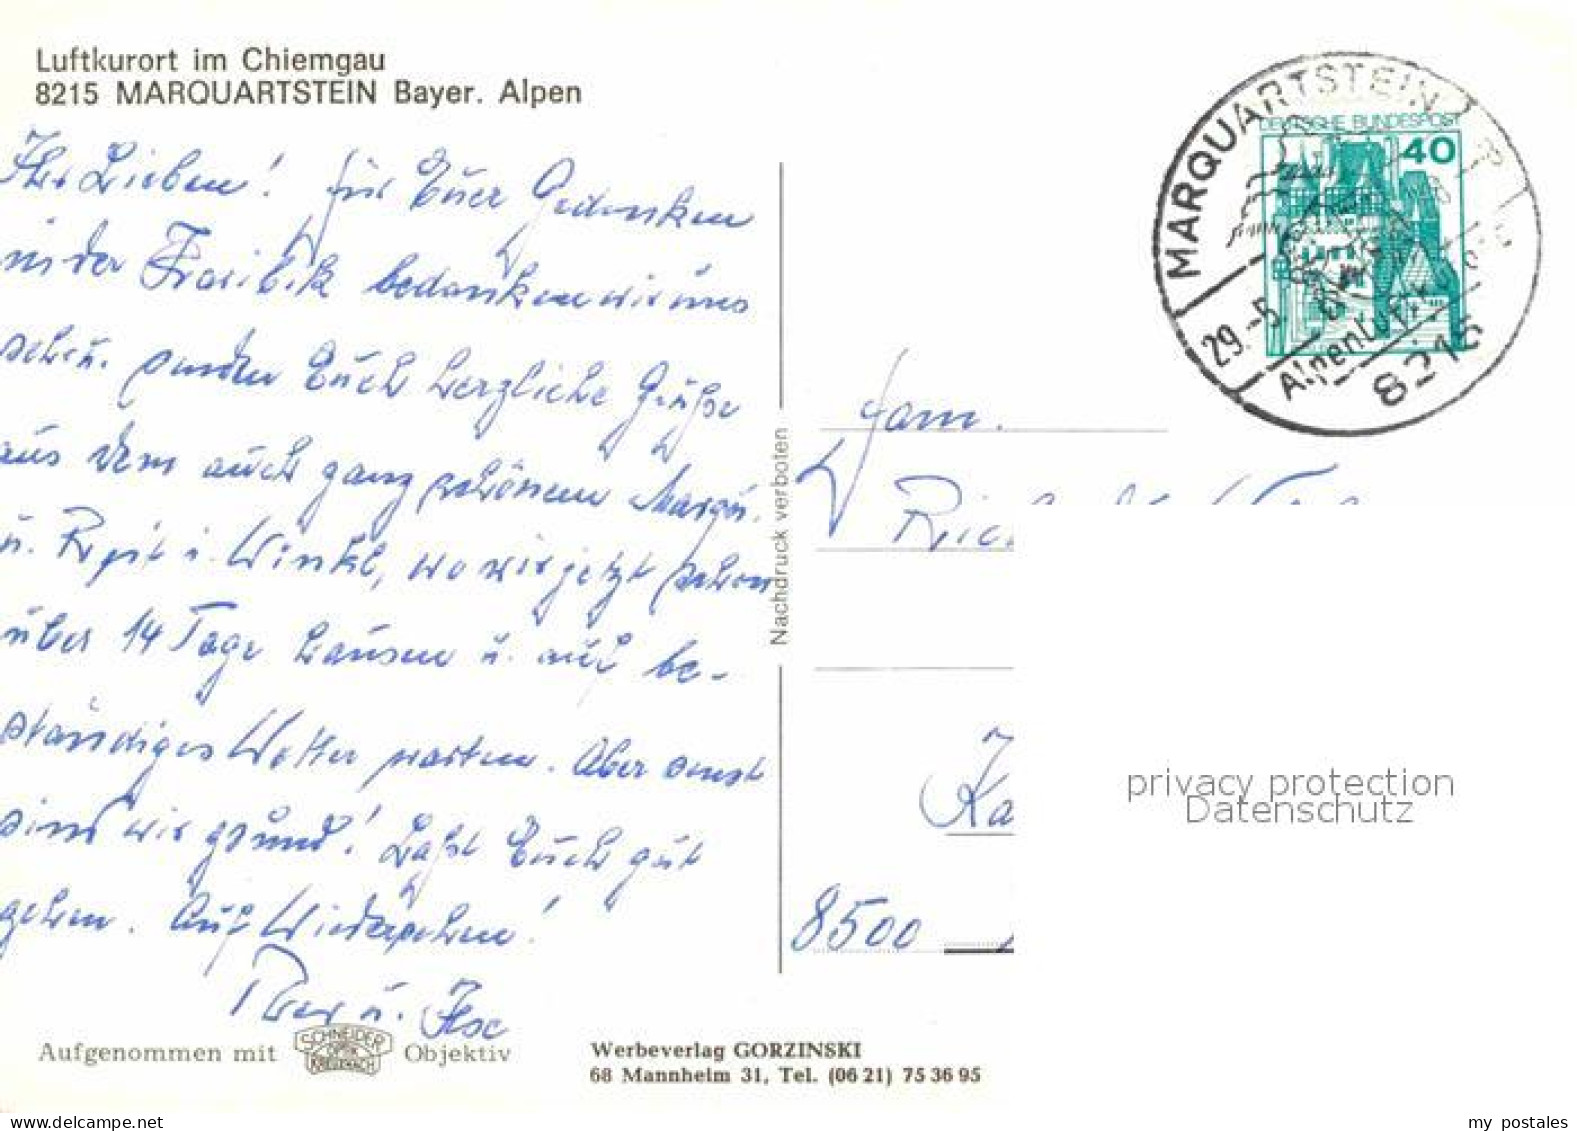 Luftkurort im Chiemgau
8215 MARQUARTSTEIN Bayer. Alpen
Ihr Lieben! Für Euer Gedenken
in der Karibik bedanken wir uns
schön. senden Euch herzliche Grüße
aus dem auch ganz schönem Marqu.
u. Reit i. Winkl, wo wir jetzt schon
über 14 Tage hausen u. auf be-
ständiges Wetter warten. Aber sonst
sind wir gesund! Laßt Euch gut
gehen. Auf Wiedersehen!
u. Ilse
Aufgenommen mit SCHNEIDER OPTIK KREUZNACH Objektiv
Werbeverlag GORZINSKI
68 Mannheim 31, Tel. (06 21) 75 36 95
Nachdruck verboten
MARQUARTSTEIN
DEUTSCHE BUNDESPOST
40
29.-5
8215
Fam.
8500
privacy protection
Datenschutz
my postales